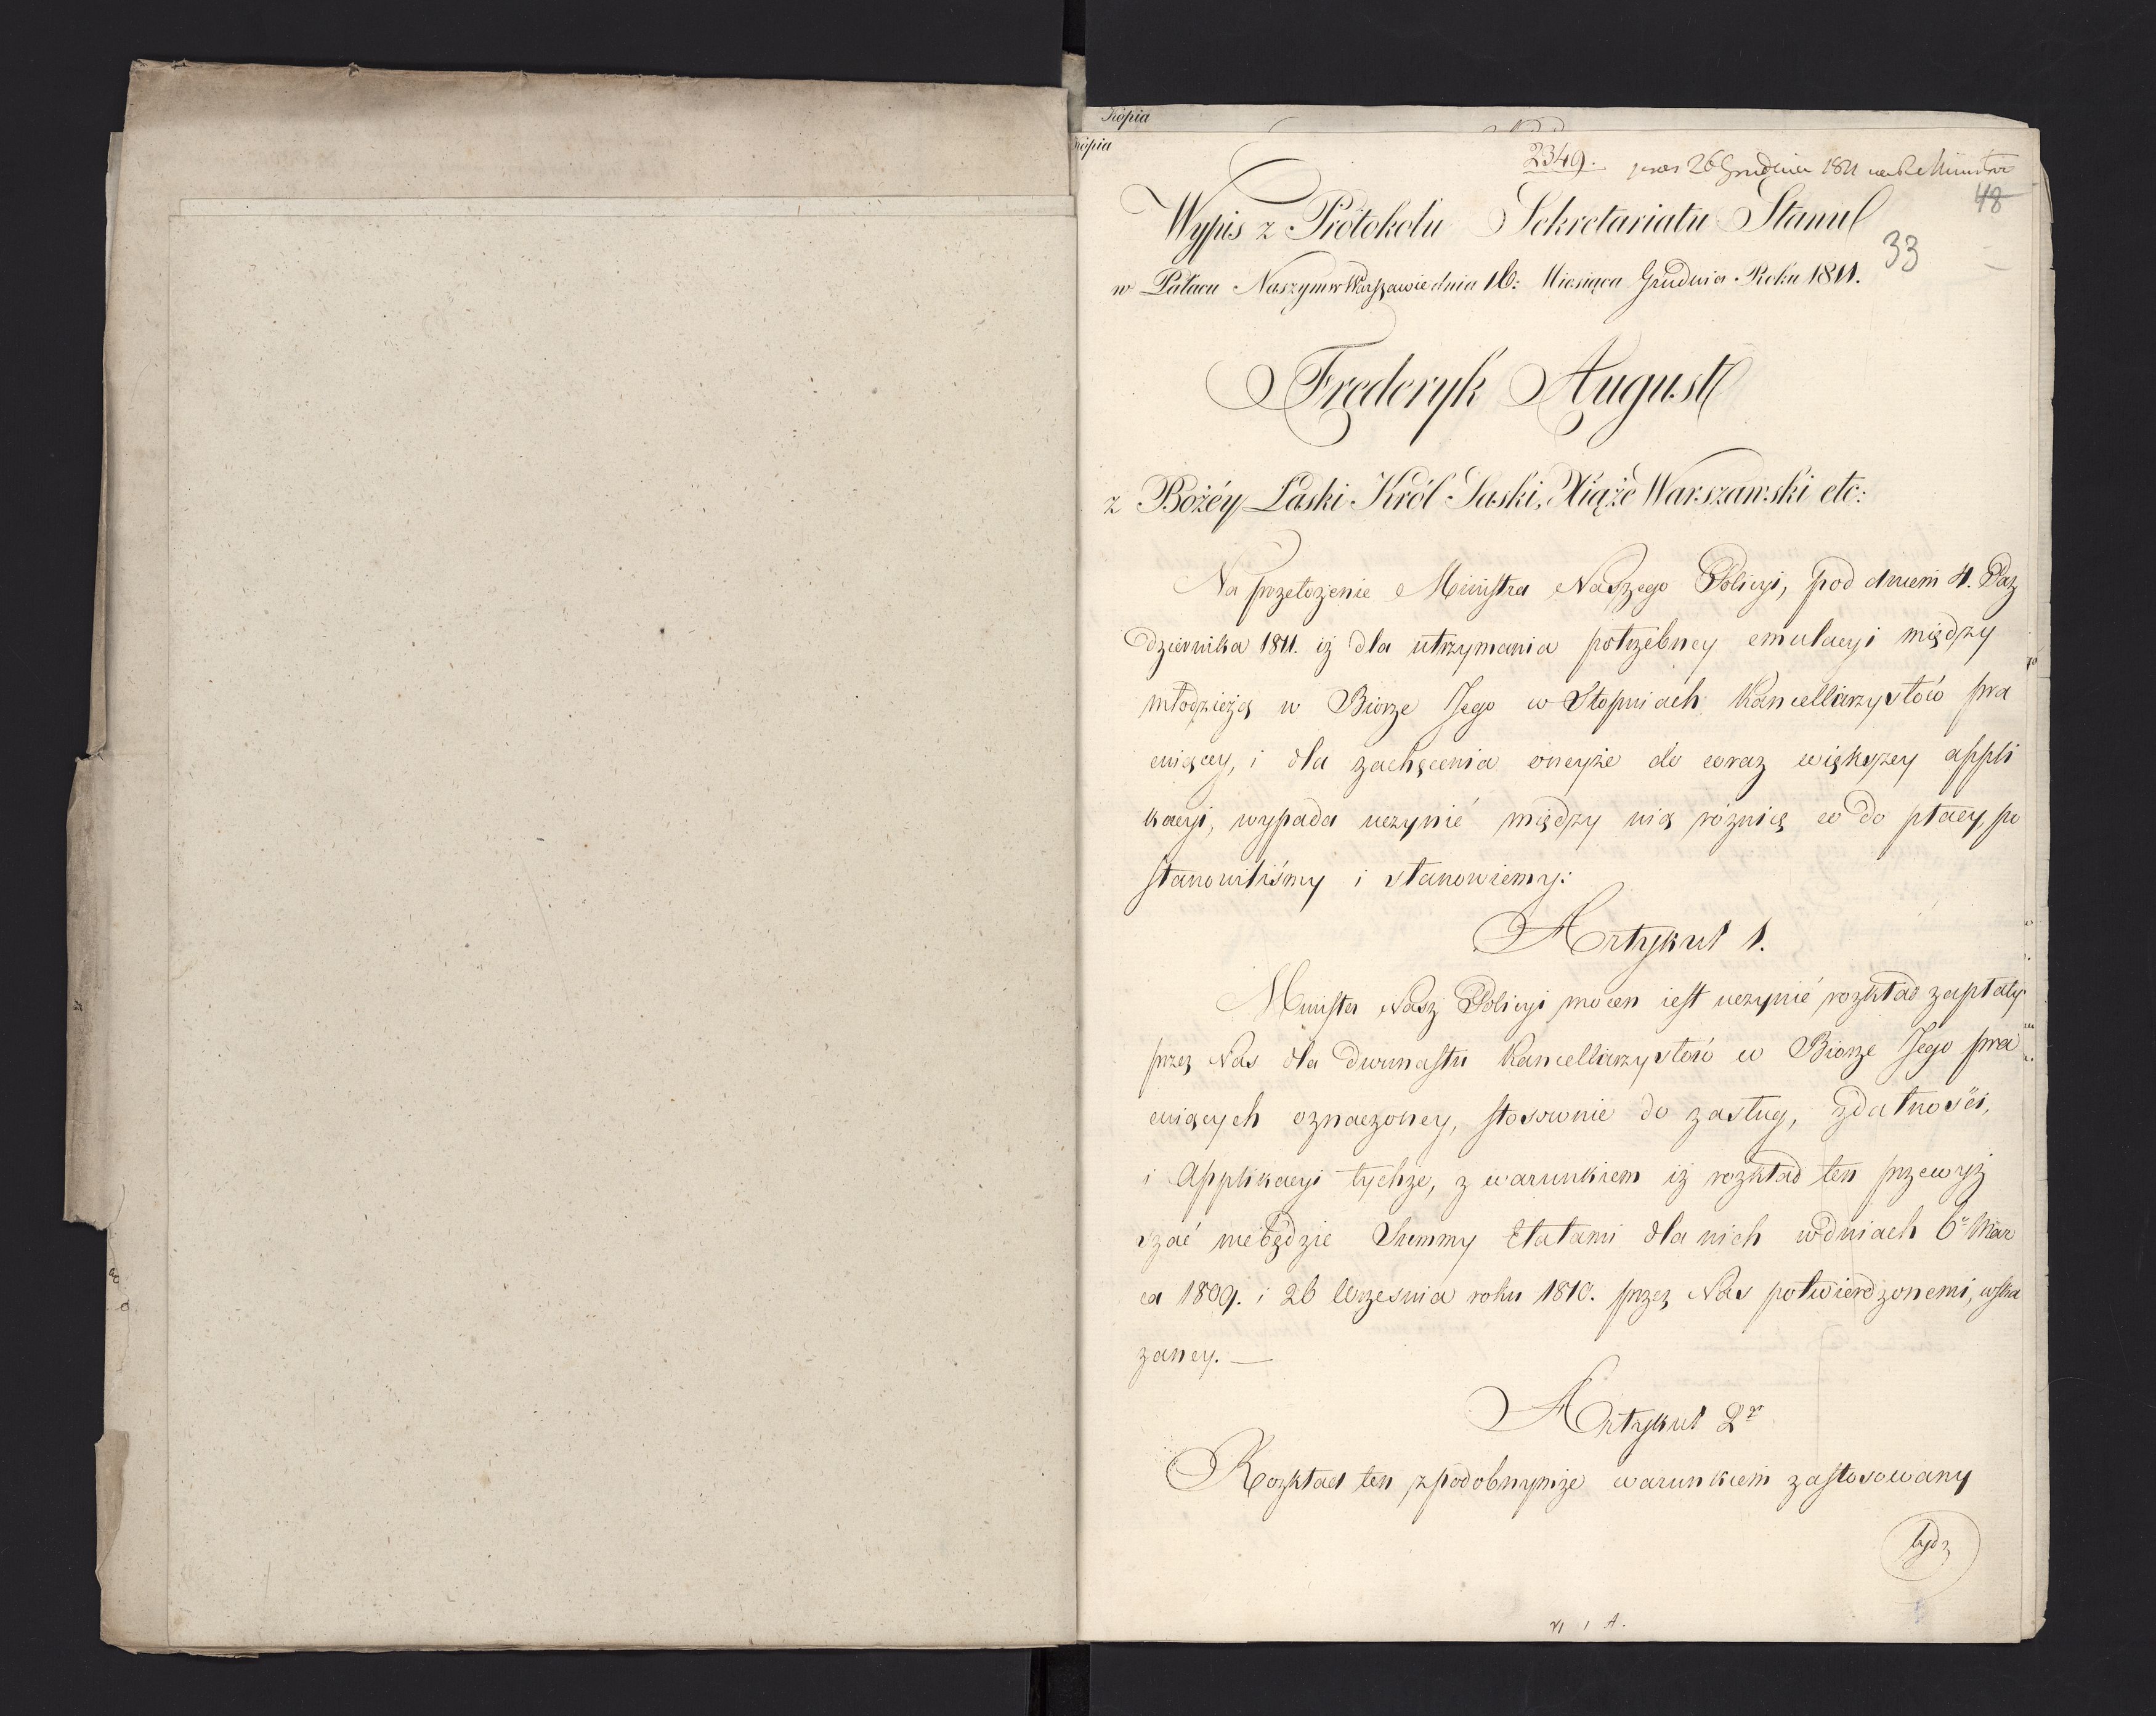 Kopia
kopia
2349. 26 Grudnia 1811
48
Wypis z Protokołu Sekretariatu Stanu
33
w Pałacu Naszym w Warszawie dnia 16: Miesiąca Grudnia Roku 1811.
Frederyk August
z Bożéy Łaski Król Saski, Xiąże Warszawski etc:
Na przełożenie Ministra Naszego Policyi, pod dniem 4. Paz
dziernika 1811. iż dla utrzymania potrzebney emulacyi między
młodzieżą w Biorze Jego w Stopniach Kancellarzystów pra
cuiącey, i dla zachęcenia oneyże do coraz większey appli
kacyi, wypada uczynić między nią róznicę co do płacy, po
stanowiliśmy i stanowiemy:
Artykuł 1.
Minister Nasz Policyi mocen iest uczynić rozkład zapłaty
przez Nas dla dwunastu Kancellarzystów w Biorze Jego pra
cuiących oznaczoney, stosownie do zasług, zdatności,
i Applikacyi tychże, z warunkiem iż rozkład ten przewyż
szać niebędzie Summy Etatami dla nich w dniach 6o Mar
ca 1809. i 26 Września roku 1810. przez Nas potwierdzonemi, wska
zaney. —
Artykuł 2o
Rozkład ten z podobnymże warunkiem zastosowany
bydz